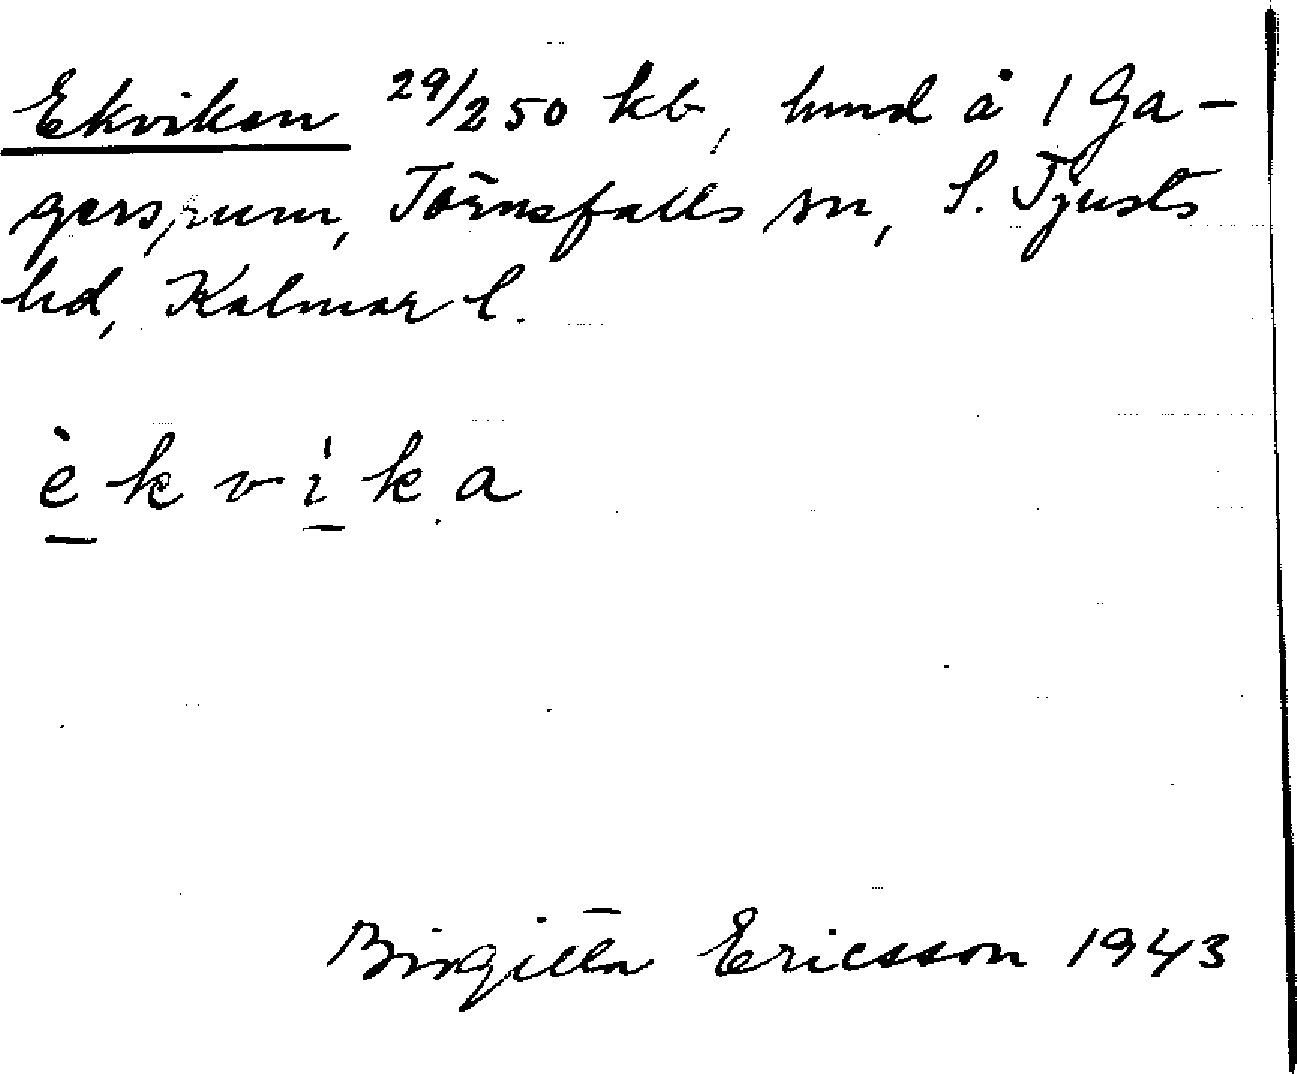 Ekviken 29/250 kb, lund å 1 Ga-
gersrum, Törnsfalls sn, S. Tjusts
hd, Kalmar l.
èkvìka
Birgitta Ericsson 1943